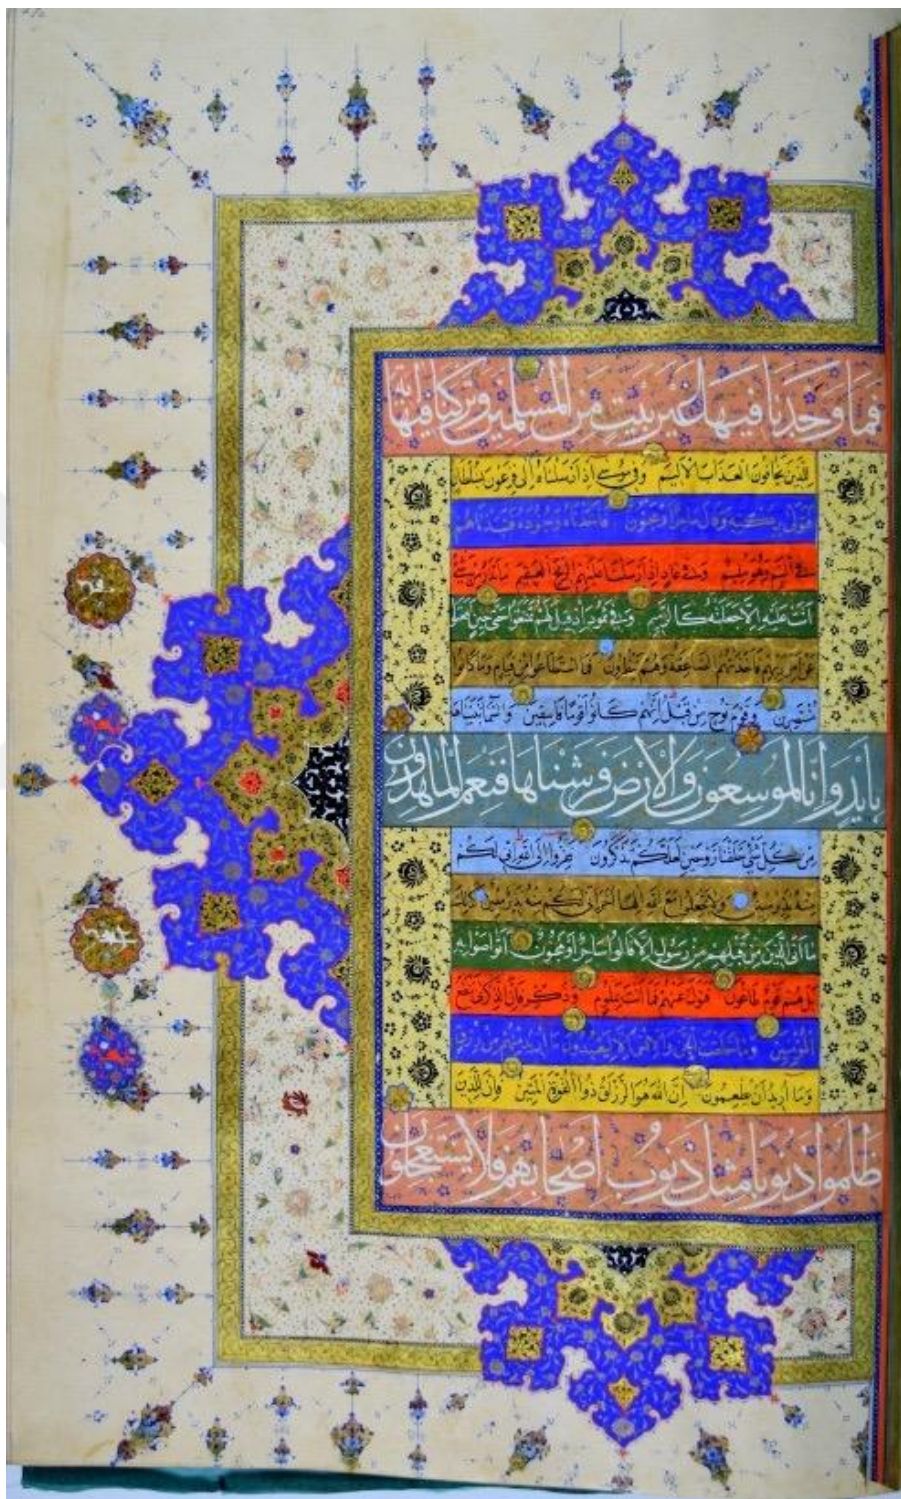 فما وجدنا فيها غير بيت من المسلمين وتركنا فيها اية
للذين يخافون العذاب الاليم وفي موسى اذ ارسلناه الى فرعون بسلطان
فتولى بركنه وقال ساحر او مجنون فاخذناه وجنوده فنبذناهم
في اليم وهو مليم وفي عاد اذ ارسلنا عليهم الريح العقيم ما تذر من شيء
اتت عليه الا جعلته كالرميم وفي ثمود اذ قيل لهم تمتعوا حتى حين فعتوا
عن امر ربهم فاخذتهم الصاعقة وهم ينظرون فما استطاعوا من قيام وما كانوا
منتصرين وقوم نوح من قبل انهم كانوا قوما فاسقين والسماء بنيناها
بايد وانا لموسعون والارض فرشناها فنعم الماهدون
من كل شيء خلقنا زوجين لعلكم تذكرون ففروا الى الله اني لكم
منه نذير مبين ولا تجعلوا مع الله الها اخر اني لكم منه نذير مبين كذلك
ما اتى الذين من قبلهم من رسول الا قالوا ساحر او مجنون اتواصوا به
بل هم قوم طاغون فتول عنهم فما انت بملوم وذكر فان الذكرى تنفع
المؤمنين وما خلقت الجن والانس الا ليعبدون ما اريد منهم من رزق
وما اريد ان يطعمون ان الله هو الرزاق ذو القوة المتين فان للذين
ظلموا ذنوبا مثل ذنوب اصحابهم فلا يستعجلون